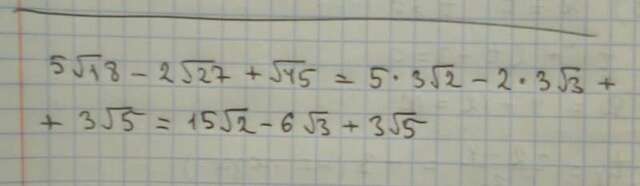 5√18 - 2√27 + √45 = 5 · 3√2 - 2 · 3√3 +
+ 3√5 = 15√2 - 6√3 + 3√5